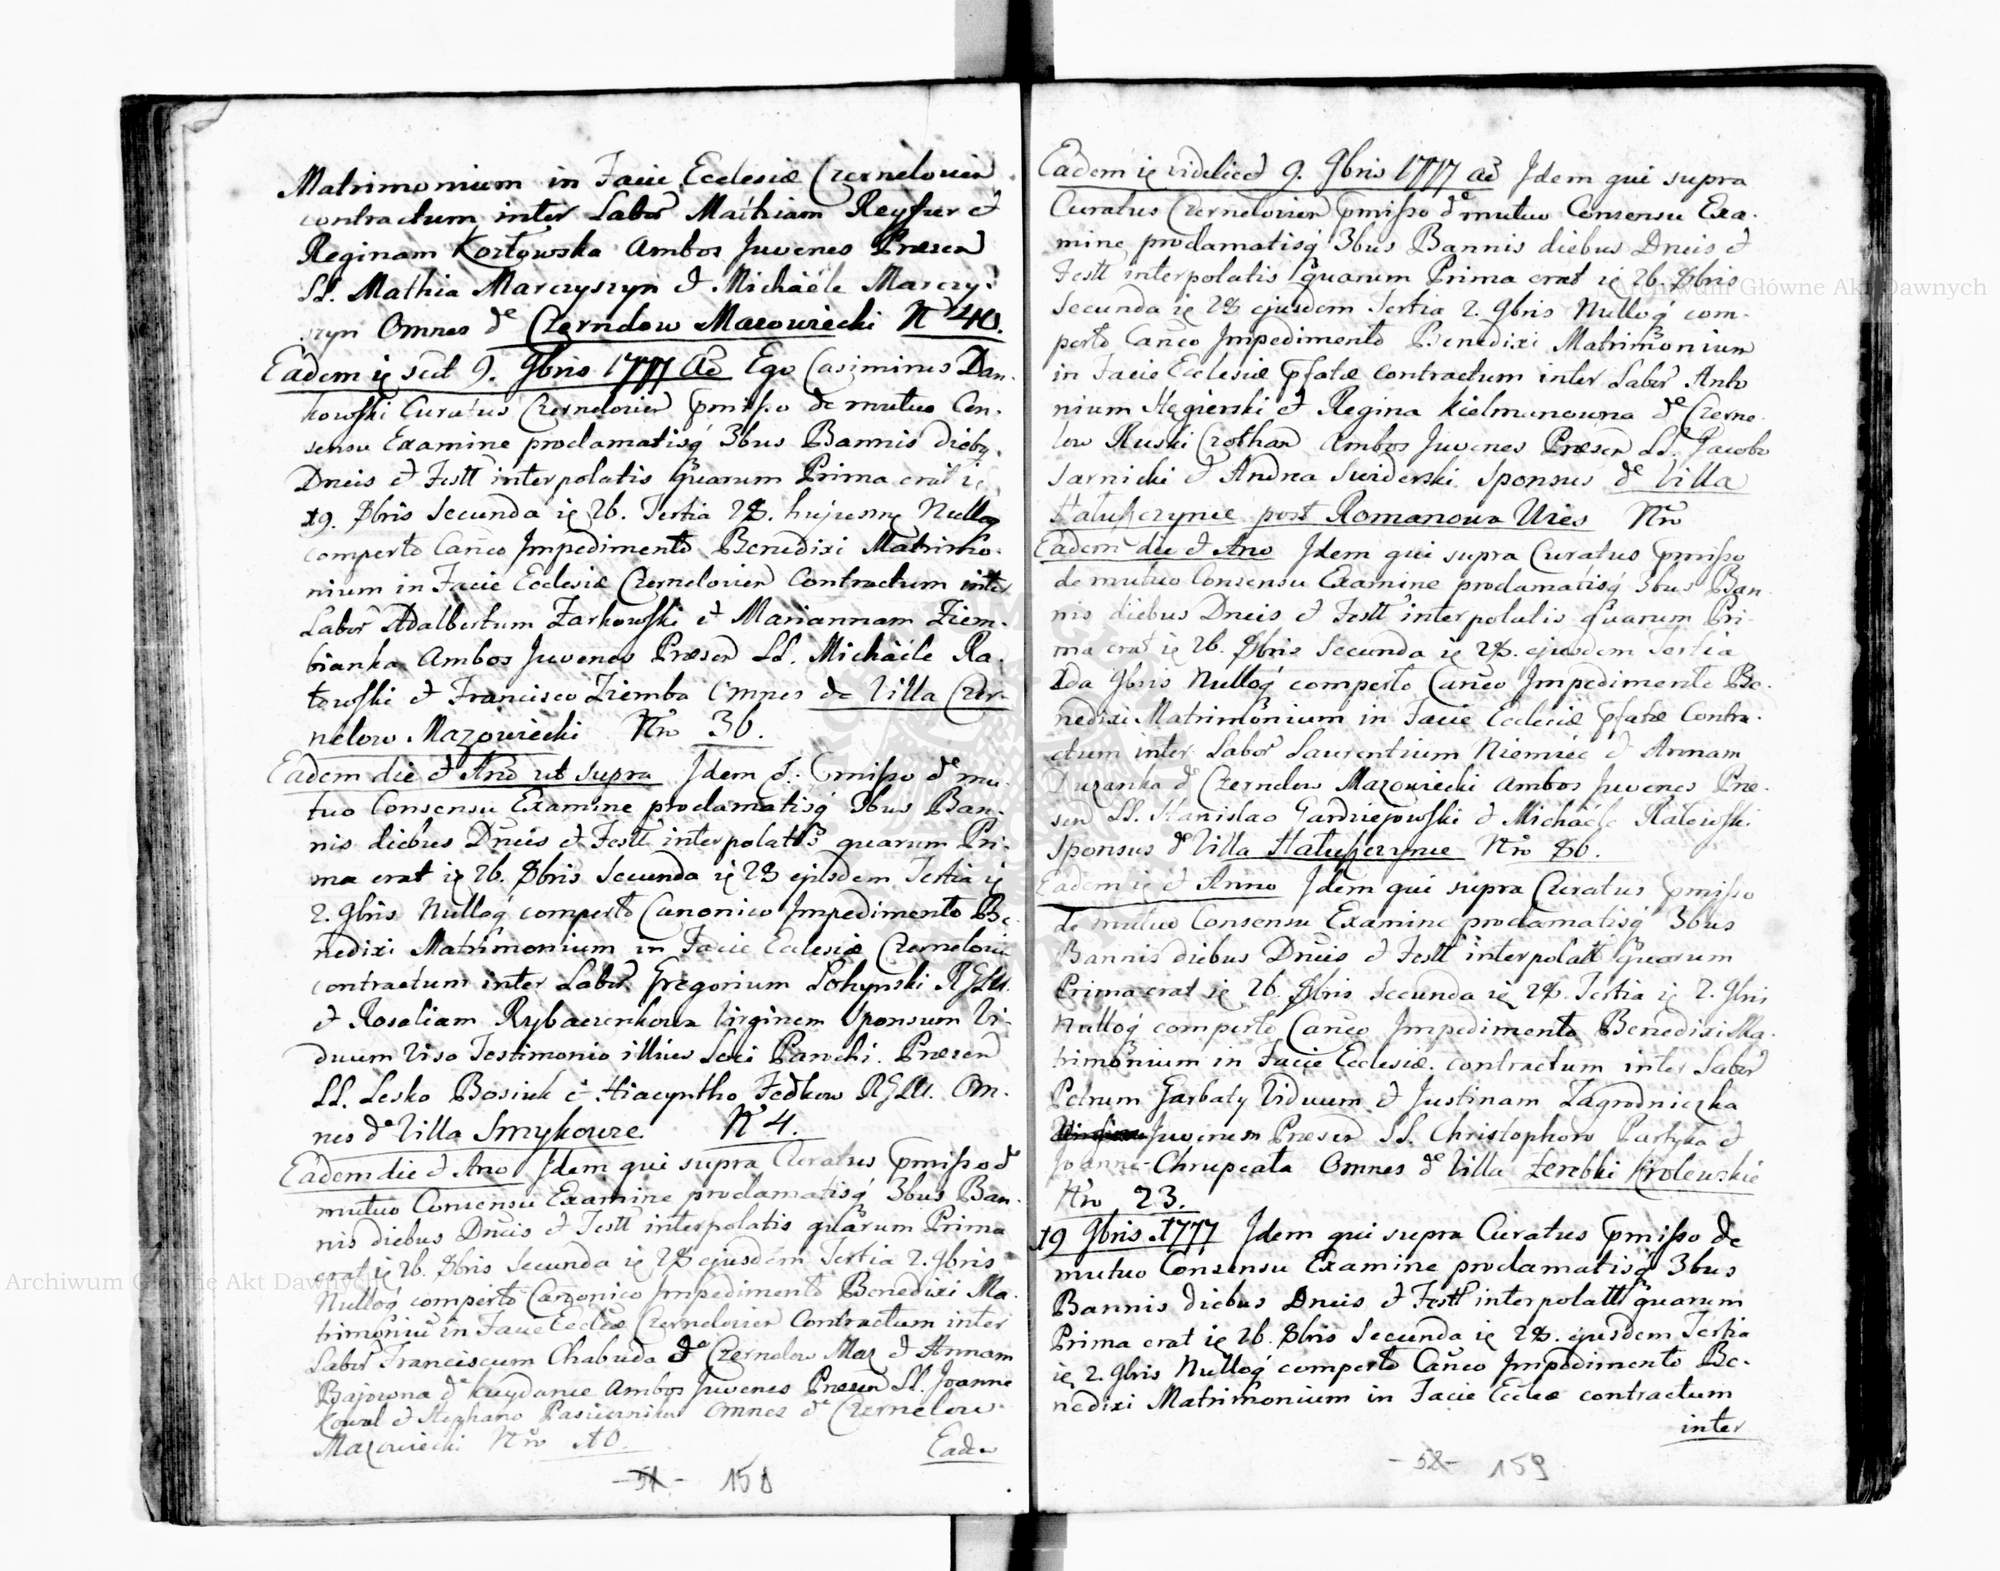 Matrimonium in Facie Ecclesiæ Czernelovien
contractum inter Labor Mathiam Reyfur et
Reginam Kozłowska Ambos Juvenes Præsen
LL. Mathia Marczyszyn et Michaële Marczy-
szyn Omnes de Czernelow Mazowiecki Nro 40.
Eadem ię scit 9. 9bris 1777 Ao Ego Casimirus Dan-
kowski Curatus Czernelovien pmisso de mutuo Con-
sensu Examine proclamatisq 3bus Bannis dieby
Dneis et Festt interpolatis quarum Prima erat ię
19. 8bris Secunda ię 26. Tertia 28. hujusmę Nulloq
comperto Canco Impedimento Benedixi Matrimo-
nium in Facie Ecclesiæ Czernelovien Contractum inter
Labor Adalbertum Zarkowski et Mariannam Ziem-
bianka Ambos Juvenes Præsen LL. Michaële Ra-
towski et Francisco Ziemba Omnes de Villa Czer-
nelow Mazowiecki Nro 36.
Eadem die et Ano ut supra Idem C. Pmisso de mu-
tuo Consensu Examine proclamatisq 3bus Ban-
nis diebus Dneis et Festt interpolatis quarum Pri-
ma erat ię 26. 8bris Secunda ię 28 ejusdem Tertia ię
2. 9bris Nulloq comperto Canonico Impedimento Be-
nedixi Matrimonium in Facie Ecclesiæ Czernelovien
contractum inter Labor Gregorium Lohynski RGLU.
et Rosaliam Rybaczenkowa Virginem Sponsum Vi-
duum Viso Testimonio illius Loci Parochi. Præsen
LL. Lesko Bosiuk et Hiacyntho Fedkow RGLU. Om-
nes de Villa Smykowce. Nro 4.
Eadem die et Ano Idem qui supra Curatus pmisso de
mutuo Consensu Examine proclamatisq 3bus Ban-
nis diebus Dneis et Festt interpolatis quarum Prima
erat ię 26. 8bris Secunda ię 28 ejusdem Tertia 2. 9bris
Nulloq comperto Canonico Impedimento Benedixi Ma-
trimoniū in Facie Eccleæ Czernelovien Contractum inter
Labor Franciscum Chabuda de Czernelow Maz et Annam
Bajowna de Kuydance Ambos Juvenes Præsen LL. Joanne
Kowal et Stephano Pasiecznik Omnes de Czernelow
Mazowiecki Nro 10.
Eadem
-51- 158
Eadem ię videlicet 9. 9bris 1777 Ao Idem qui supra
Curatus Czernelovien pmisso de mutuo Consensu Exa-
mine proclamatisq 3bus Bannis diebus Dneis et
Festt interpolatis quarum Prima erat ię 26. 8bris
Secunda ię 28 ejusdem Tertia 2. 9bris Nulloq com-
perto Canco Impedimento Benedixi Matrimonium
in Facie Ecclesiæ pfatæ contractum inter Labor Anto
nium Węgierski et Regina Kielmunowna de Czerne-
low Ruski Ambos Juvenes Præsen LL. Jacobo
Sarnicki et Andrea Swiderski Sponsus de Villa
Hałuszczynce post Romanowa Nro
Eadem die et Ano Idem qui supra Curatus pmisso
de mutuo Consensu Examine proclamatisq 3bus Ban-
nis diebus Dneis et Festt interpolatis quarum Pri-
ma erat ię 26. 8bris Secunda ię 28. ejusdem Tertia
2da 9bris Nulloq comperto Canco Impedimento Be-
nedixi Matrimonium in Facie Ecclesiæ pfatæ Contra-
ctum inter Labor Laurentium Niemiec et Annam
Duzanka de Czernelow Mazowiecki Ambos Juvenes Præ-
sen LL. Stanislao Gardziejowski et Michaële Ratowski
Sponsus de Villa Hałuszczynce Nro 86.
Eadem ię et Anno Idem qui supra Curatus pmisso
de mutuo Consensu Examine proclamatisq 3bus
Bannis diebus Dneis et Festt interpolatt quarum
Prima erat ię 26. 8bris Secunda ię 28. Tertia ię 2. 9bris
Nulloq comperto Canco Impedimento Benedixi Ma-
trimonium in Facie Ecclesiæ contractum inter Labor
Petrum Garbaty Viduum et Justinam Zagrodniczka
Juvenem Præsen LL. Christophoro Partyka et
Joanne Chrupcata Omnes de Villa Zerebki Krolewskie
Nro 23.
19 9bris 1777 Idem qui supra Curatus pmisso de
mutuo Consensu Examine proclamatisq 3bus
Bannis diebus Dneis et Festt interpolatt quarum
Prima erat ię 26. 8bris Secunda ię 28. ejusdem Tertia
ię 2. 9bris Nulloq comperto Canco Impedimento Be-
nedixi Matrimonium in Facie Eccleæ contractum
inter
-52- 159
Archiwum Główne Akt Dawnych
Archiwum Główne Akt Dawnych